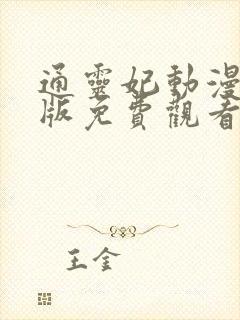 通靈妃動漫
版免費觀看
王金